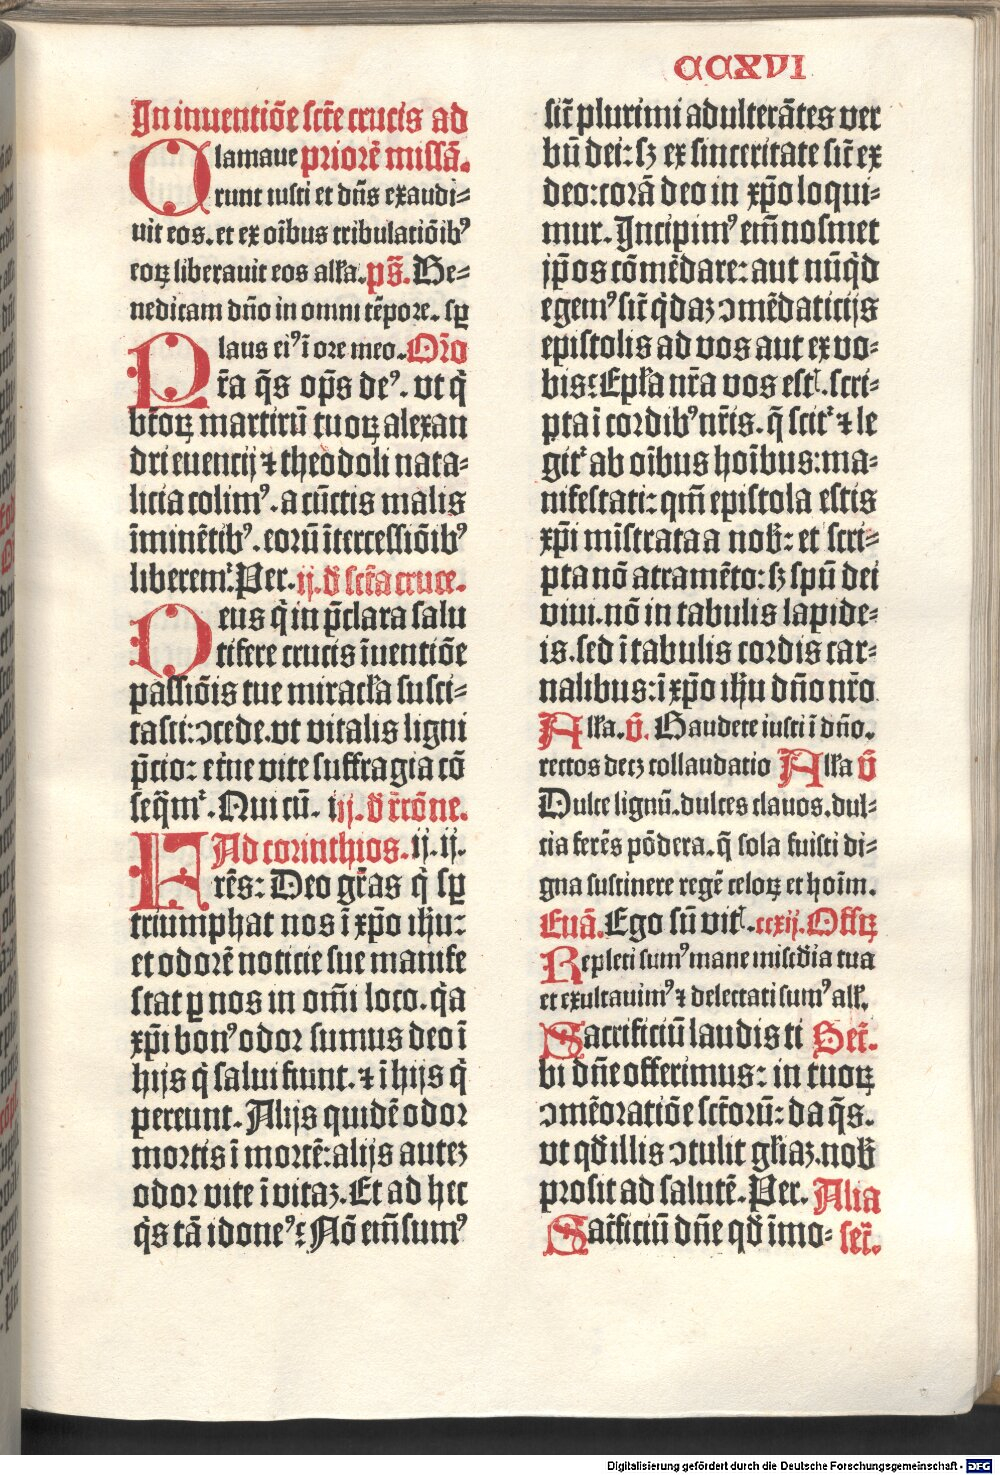 CCXVI
In inuentiōe sctē crucis ad
Clamaue priorē missā.
runt iusti et dn̄s exaudi⸗
uit eos. et ex oībus tribulatiōibꝰ
eoꝝ liberauit eos allꝛa. ps̄. Be⸗
nedicam dn̄o in omni tēpore. sꝑ
laus eiꝰ ī ore meo. Or̄o
PR̄a q̄s op̄s deꝰ. vt q̄
btōꝝ martirū tuoꝝ alexan
dri euentij ⁊ theodoli nata⸗
licia colimꝰ. a cūctis malis
īminētibꝰ. eorū ītercessiōibꝰ
liberemr̄. Per. ij. d̄ sctā cruce.
Deus q̄ in p̄clara salu
tifere crucis īuentiōe
passiōis tue miracła susci⸗
tasti: ɔcede. vt vitalis ligni
p̄cio: etn̄e vite suffragia cō
seq̄mr̄. Qui cū. iij. d̄ r̄rc̄ōne.
Ad corinthios. ij. ij.
FRēs: Deo gr̄as q̄ sꝑ
triumphat nos ī xp̄o ihu:
et odorē noticie sue manife
stat ꝑ nos in om̄i loco. q̄a
xp̄i bonꝰ odor sumus deo ī
hijs q̄ salui fiunt. ⁊ ī hijs q̄
pereunt. Alijs quidē odor
mortis ī mortē: alijs autez
odor vite ī vitaz. Et ad hec
q̄s tā idoneꝰ: Nō em̄ sumꝰ
sic̄ plurimi adulterātes ver
bū dei: sꝫ ex sinceritate sic̄ ex
deo: corā deo in xp̄o loqui⸗
mur. Incipimꝰ em̄ nosmet
ip̄os cōmēdare: aut nūq̄d
egemꝰ sic̄ q̄daz ɔmēdaticijs
epistolis ad vos aut ex vo⸗
bis: Ep̄ła nr̄a vos est. scri⸗
pta ī cordibꝰ nr̄is. q̄ scitr̄ ⁊ le
gitr̄ ab oībus hoībus: ma⸗
nifestati: qm̄ epistola estis
xp̄i mīstrata a nob̄: et scri⸗
pta nō atramēto: sꝫ spū dei
viui. nō in tabulis lapide⸗
is. sed ī tabulis cordis car⸗
nalibus: ī xp̄o ihu dn̄o nr̄o
Allꝛa. v̄. Gaudete iusti ī dn̄o.
rectos decꝫ collaudatio Allꝛa v̄
Dulce lignū. dulces clauos. dul⸗
cia ferēs pōdera. q̄ sola fuisti di⸗
gna sustinere regē celoꝝ et hoīm.
Euā. Ego sū vit. ccxij. Offꝝ
Repleti sumꝰ mane miscd̄ia tua
et exultauimꝰ ⁊ delectati sumꝰ all̄.
Sacrificiū laudis ti Sec̄.
bi dn̄e offerimus: in tuoꝝ
ɔmēoratiōe sctōrū: da q̄s.
vt qd̄ illis ɔtulit głiaz. nob̄
prosit ad salutē. Per. Alia
Sacr̄ficiū dn̄e qd̄ īmo⸗ sec̄.
Digitalisierung gefördert durch die Deutsche Forschungsgemeinschaft - DFG